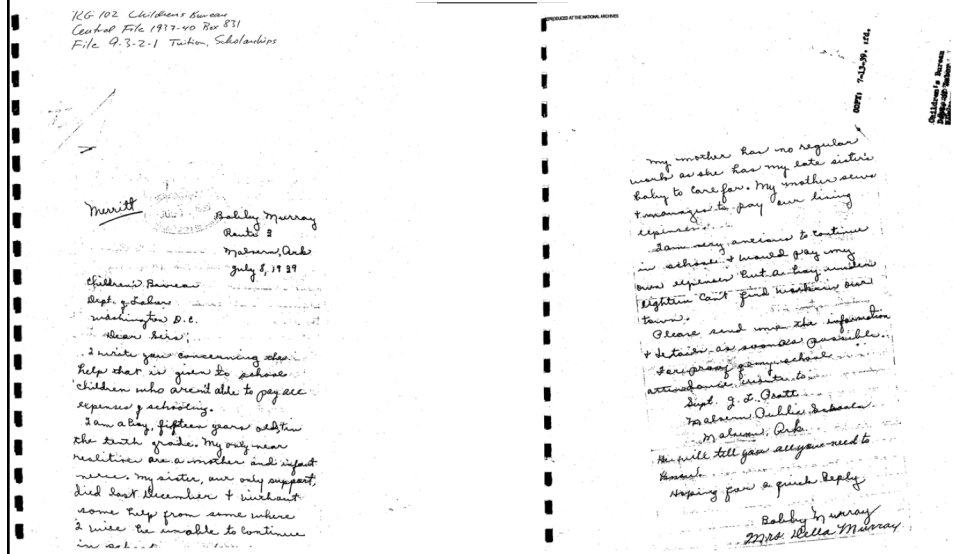 RG 102 Childrens Bureau
Central File 1937-40 Box 831
File 9-3-2-1 Tuition, Scholarships
Merritt
Bobby Murray
Route 3
Malvern, Ark
July 8, 1939
Children's Bureau
Dept. of Labor
Washington D.C.
Dear Sirs;
I write you concerning the
help that is given to school
children who aren't able to pay all
expenses of schooling.
I am a boy, fifteen years old + in
the tenth grade. My only near
relatives are a mother and infant
niece. My sister, our only support,
died last December + without
some help from some where
I will be unable to continue
in
REPRODUCED AT THE NATIONAL ARCHIVES
COPY: 7-13-39.
Children's Bureau
My mother has no regular
work as she has my late sister's
baby to care for. My mother sews
+ manages to pay our living
expenses.
I am very anxious to continue
in school + would pay my
own expenses but a boy under
eighteen can't find work in our
town.
Please send me the information
+ details as soon as possible.
For proof of my school
attendance write to
Supt. J. L. Pratt
Malvern Public Schools
Malvern, Ark.
He will tell you all you need to
know.
Hoping for a quick Reply
Bobby Murray
Mrs. Della Murray